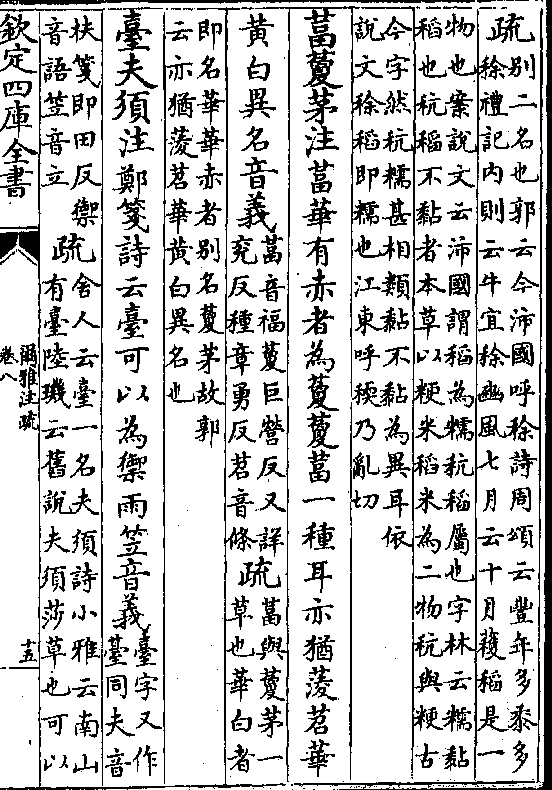 疏別二名也郭云今沛國呼稌詩周頌云豐年多黍多
稌禮記內則云牛宜稌豳風七月云十月穫稻是一
物也案說文云沛國謂稻為糯秔稻屬也字林云糯黏
稻也秔稻不黏者本草以粳米稻米為二物秔與粳古
今字然秔糯甚相類黏不黏為異耳依
說文稌稻即糯也江東呼稬乃亂切
葍藑茅注葍華有赤者為藑藑葍一種耳亦猶蔆苕華
黃白異名音義
葍音福藑巨營反又詳
兖反種章勇反苕音條
疏
葍與藑茅一
草也華白者
即名華華赤者別名藑茅故郭
云亦猶蔆苕華黃白異名也
臺夫須注鄭箋詩云臺可以為禦雨笠音義
臺字又作
薹同夫音
扶箋即田反禦
音語笠音立
疏
舍人云臺一名夫須詩小雅云南山
有臺陸璣云舊說夫須莎草也可以
欽定四庫全書
爾雅注疏
卷八
十五